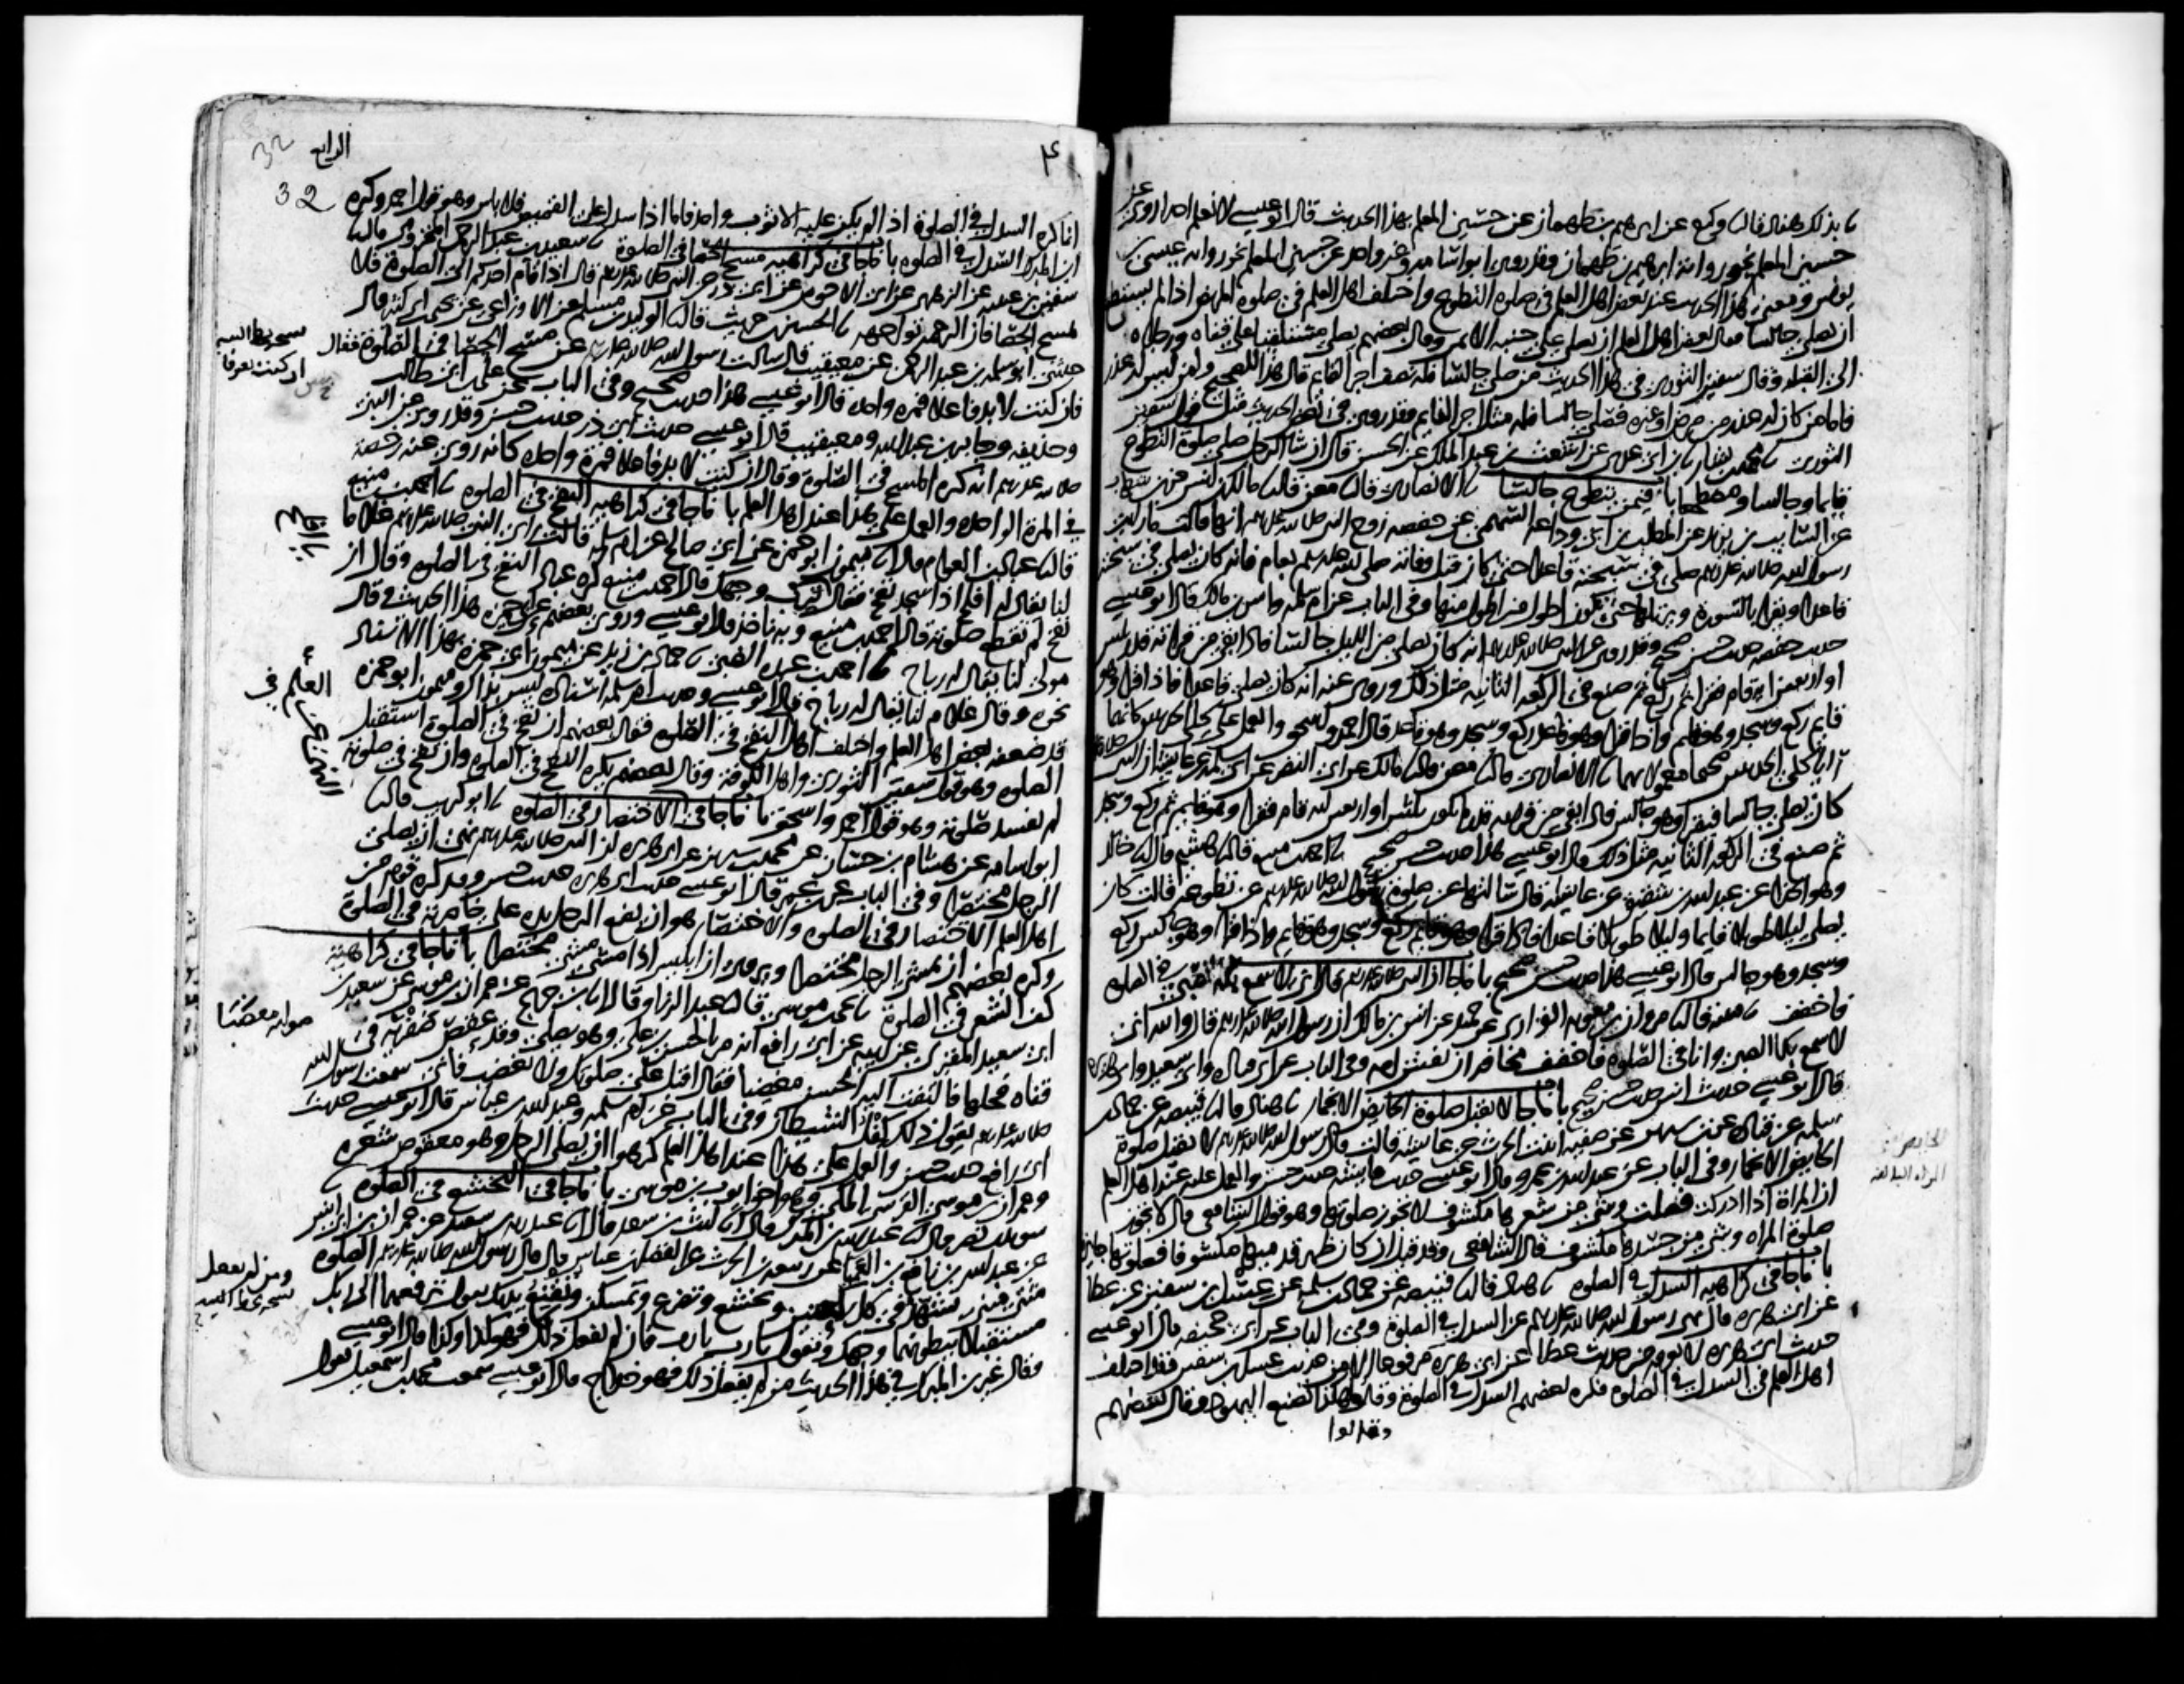 نا بذلك هناد قال نا وكيع عن ابرهيم بن طهمان عن حسين المعلم بهذا الحديث قال ابو عيسى لا نعلم احدا روى عن
حسين المعلم نحو رواية ابرهيم بن طهمان وقد روى ابو اسامه وغير واحد عن حسين المعلم نحو رواية عيسى بن
يونس ومعنى هذا الحديث عند بعض اهل العلم في صلوة التطوع واختلف اهل العلم في صلوة المريض اذا لم يستطع
ان يصلي جالسا فقال بعض اهل العلم ان يصلي على جنبه الايمن وقال بعضهم يصلي مستلقيا على قفاه ورجلاه
الى القبلة وقال سفين الثوري في هذا الحديث من صلى جالسا فله نصف اجر القايم قال هذا للصحيح ولمن ليس له عذر
فاما من كان له عذر من مرض او غيره فصلى جالسا فله مثل اجر القايم وقد روي في بعض الحديث مثل قول سفين
الثوري نا محمد بن بشار نا ابن ابي عدي عن اشعث بن عبد الملك عن الحسن قال ان شا الرجل صلى صلوة التطوع
قايما وجالسا ومضطجعا باب فيمن يتطوع جالسا نا الانصاري قال نا معن قال نا مالك بن انس عن ابن شهاب
عن السايب بن يزيد عن المطلب بن ابي وداعة السهمي عن حفصه زوج النبي صلى الله عليه وسلم انها قالت ما رايت
رسول الله صلى الله عليه وسلم صلى في سبحته قاعدا حتى كان قبل وفاته صلى الله عليه وسلم بعام فانه كان يصلي في سبحته
قاعدا ويقرا بالسورة ويرتلها حتى تكون اطول من اطول منها وفي الباب عن ام سلمه وانس بن مالك قال ابو عيسى
حديث حفصه حديث حسن صحيح وقد روي عن النبي صلى الله عليه وسلم انه كان يصلي من الليل جالسا فاذا بقي من قراته قدر ثلثين
او اربعين اية قام فقرا ثم ركع ثم صنع في الركعة الثانية مثل ذلك وروي عنه انه كان يصلي قاعدا فاذا قرا وهو
قايم ركع وسجد وهو قايم واذا قرا وهو قاعد ركع وسجد وهو قاعد قال احمد واسحق والعمل على كلا الحديثين كانهما
رايا كلا الحديثين صحيحا معمولا بهما نا الانصاري قال نا معن قال نا مالك عن ابي النضر عن ابي سلمة عن عايشة ان النبي
كان يصلي جالسا فيقرا وهو جالس فاذا بقي من قراته قدر ما يكون ثلثين او اربعين اية قام فقرا وهو قايم ثم ركع وسجد
ثم صنع في الركعة الثانية مثل ذلك قال ابو عيسى هذا حديث حسن صحيح نا احمد بن منيع قال نا هشيم قال نا خالد
وهو الحذا عن عبد الله بن شقيق عن عايشة قال سالتها عن صلوة رسول الله صلى الله عليه وسلم عن تطوعه قالت كان
يصلي ليلا طويلا قايما وليلا طويلا قاعدا فاذا قرا وهو قايم ركع وسجد وهو قايم واذا قرا وهو جالس ركع
وسجد وهو جالس قال ابو عيسى هذا حديث حسن صحيح باب ما جا ان النبي صلى الله عليه وسلم قال اني لاسمع بكا الصبي في الصلوة
فاخفف نا قتيبة قال نا مروان بن معوية الفزاري عن حميد عن انس بن مالك ان رسول الله صلى الله عليه وسلم قال والله اني
لاسمع بكا الصبي وانا في الصلوة فاخفف مخافة ان تفتتن امه وفي الباب عن ابي قتادة وابي سعيد وابي هريرة
قال ابو عيسى حديث انس حديث حسن صحيح باب ما جا لا تقبل صلوة الحايض الا بخمار نا هناد قال نا قبيصة عن حماد بن
سلمه عن قتادة عن ابن سيرين عن صفيه ابنت الحرث عن عايشة قالت قال رسول الله صلى الله عليه وسلم لا تقبل صلوة
الحايض الا بخمار وفي الباب عن عبد الله بن عمرو قال ابو عيسى حديث عايشة حديث حسن والعمل عليه عند اهل العلم
ان المراة اذا ادركت فصلت وشي من شعرها مكشوف لا تجوز صلوتها وهو قول الشافعي قال لا تجوز
صلوة المراه وشي من جسدها مكشوف قال الشافعي وقد قيل ان كان ظهر قدميها مكشوفا فصلوتها جايزة
باب ما جا في كراهية السدل في الصلوة نا هناد قال نا قبيصة عن حماد بن سلمه عن عسل بن سفين عن عطا
عن ابي هريرة قال نهى رسول الله صلى الله عليه وسلم عن السدل في الصلوة وفي الباب عن ابي جحيفة قال ابو عيسى
حديث ابي هريرة لا نعرفه من حديث عطا عن ابي هريرة مرفوعا الا من حديث عسل بن سفين وقد اختلف
اهل العلم في السدل في الصلوة فكره بعضهم السدل في الصلوة وقالوا هكذا تصنع اليهود وقال بعضهم
الرابع
32
انما كره السدل في الصلوة اذا لم يكن عليه الا ثوب واحد فاما اذا سدل على القميص فلا باس وهو قول احمد وكره
ابن المبارك السدل في الصلوة باب ما جا في كراهية مسح الحصا في الصلوة نا سعيد بن عبد الرحمن المخزومي قال نا
سفين بن عيينة عن الزهري عن ابي الاحوص عن ابي ذر عن النبي صلى الله عليه وسلم قال اذا قام احدكم الى الصلوة فلا
يمسح الحصا فان الرحمة تواجهه نا الحسين بن حريث قال نا الوليد بن مسلم عن الاوزاعي عن يحيى بن ابي كثير قال
حدثني ابو سلمة بن عبد الرحمن عن معيقيب قال سالت رسول الله صلى الله عليه وسلم عن مسح الحصا في الصلوة فقال
فان كنت لا بد فاعلا فمرة واحدة قال ابو عيسى هذا حديث صحيح وفي الباب عن علي بن ابي طالب
وحذيفه وجابر بن عبد الله ومعيقيب قال ابو عيسى حديث ابي ذر حديث حسن وقد روي عن النبي
صلى الله عليه وسلم انه كره المسح في الصلوة وقال ان كنت لا بد فاعلا فمرة واحدة كانه روي عنه رخصة
في المرة الواحدة والعمل على هذا عند اهل العلم باب ما جا في كراهية النفخ في الصلوة نا احمد بن منيع
قال نا عباد بن العوام قال انا ميمون ابو حمزة عن ابي صالح عن ام سلمة قالت راى النبي صلى الله عليه وسلم غلاما
لنا يقال له افلح اذا سجد نفخ فقال ترب وجهك قال احمد بن منيع كره عباد النفخ في الصلوة وقال ان
نفخ لم تقطع صلوته قال احمد بن منيع وبه ناخذ قال ابو عيسى وروى بعضهم عن ابي حمزة هذا الحديث وقال
مولى لنا يقال له رباح نا احمد بن عبدة الضبي نا حماد بن زيد عن ميمون ابي حمزة بهذا الاسناد
نحوه وقال غلام لنا يقال له رباح قال ابو عيسى وحديث ام سلمة اسناده ليس بذاك وميمون ابو حمزة
قد ضعفه بعض اهل العلم واختلف اهل العلم في النفخ في الصلوة فقال بعضهم ان نفخ في الصلوة استقبل
الصلوة وهو قول سفين الثوري واهل الكوفة وقال بعضهم يكره النفخ في الصلوة وان نفخ في صلوته
لم تفسد صلوته وهو قول احمد واسحق باب ما جا في الاختصار في الصلوة نا ابو كريب قال نا
ابو اسامة عن هشام بن حسان عن محمد بن سيرين عن ابي هريرة ان النبي صلى الله عليه وسلم نهى ان يصلي
الرجل مختصرا وفي الباب عن ابن عمر قال ابو عيسى حديث ابي هريرة حديث حسن وقد كره قوم من
اهل العلم الاختصار في الصلوة والاختصار هو ان يضع الرجل يده على خاصرته في الصلوة
وكره بعضهم ان يمشي الرجل مختصرا ويروى ان ابليس اذا مشى مشى مختصرا باب ما جا في كراهية
كف الشعر في الصلوة نا يحيى بن موسى قال نا عبد الرزاق قال انا ابن جريج عن عمران بن موسى عن سعيد بن
ابي سعيد المقبري عن ابيه عن ابي رافع انه مر بالحسن بن علي وهو يصلي وقد عقص ضفرته في
قفاه فحلها فالتفت اليه الحسن مغضبا فقال اقبل على صلوتك ولا تغضب فاني سمعت رسول الله
صلى الله عليه وسلم يقول ذلك كفل الشيطان وفي الباب عن ام سلمه وعبد الله بن عباس قال ابو عيسى حديث
ابي رافع حديث حسن والعمل على هذا عند اهل العلم كرهوا ان يصلي الرجل وهو معقوص شعره
وعمران بن موسى القرشي المكي وهو اخو ايوب بن موسى باب ما جا في التخشع في الصلوة نا
سويد بن نصر قال نا عبد الله بن المبارك قال انا ليث بن سعد قال انا عبد ربه بن سعيد عن عمران بن ابي انس
عن عبد الله بن نافع بن العميا عن ربيعة بن الحرث عن الفضل بن عباس قال قال رسول الله صلى الله عليه وسلم الصلوة
مثنى مثنى تشهد في كل ركعتين وتخشع وتضرع وتمسكن وتقنع يديك يقول ترفعهما الى ربك
مستقبلا ببطونهما وجهك وتقول يا رب يا رب فان لم تفعل ذلك فهو كذا وكذا قال ابو عيسى
وقال غير ابن المبارك في هذا الحديث من لم يفعل ذلك فهو خداج قال ابو عيسى سمعت محمد بن اسمعيل يقول